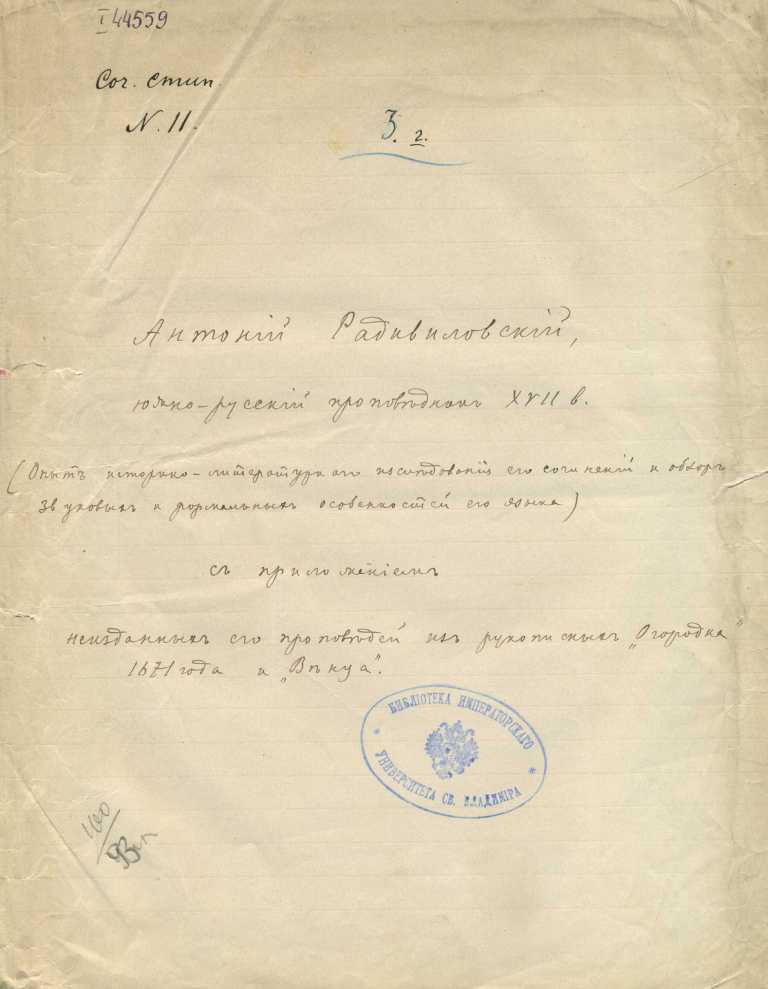 I 44559
Соч. стип.
N. 11.
3. г.
Антоній Радивиловскій,
южно-русскій проповѣдникъ XVII в.
(Опытъ историко-литературнаго изслѣдованія его сочиненій и обзоръ
звуковыхъ и формальныхъ особенностей его языка)
съ приложеніемъ
неизданныхъ его проповѣдей изъ рукописныхъ „Огородка"
1671 года и „Вѣнца".
БИБЛІОТЕКА ИМПЕРАТОРСКАГО
УНИВЕРСИТЕТА СВ. ВЛАДИМІРА
160